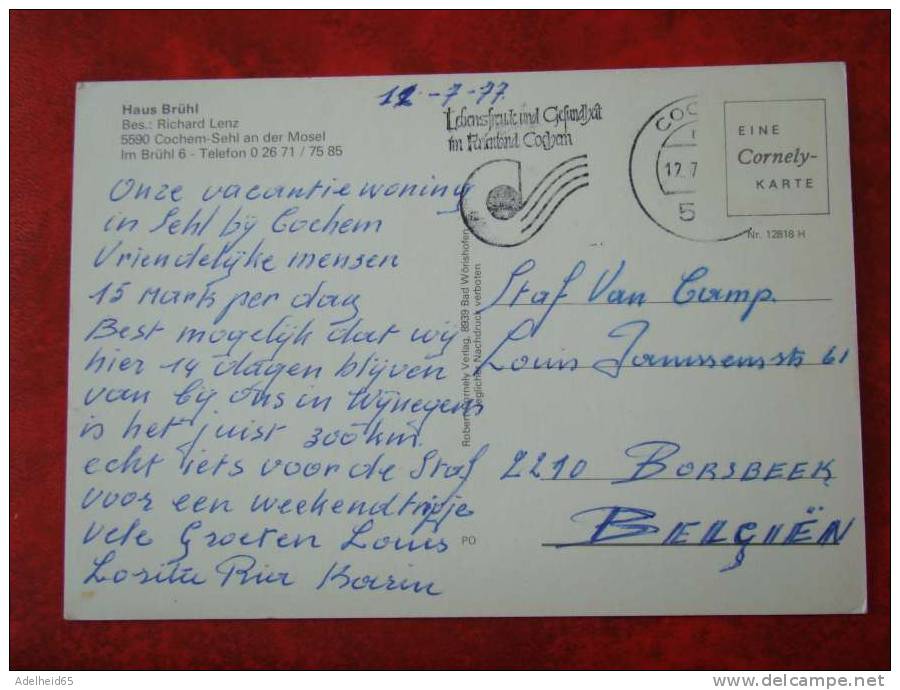 Haus Brühl
Bes.: Richard Lenz
5590 Cochem-Sehl an der Mosel
Im Brühl 6 - Telefon 0 26 71 / 75 85
12-7-77
Onze vacantiewoning
in Sehl bij Cochem
Vriendelijke mensen
15 Mark per dag
Best mogelijk dat wij
hier 14 dagen blijven
van bij ons in Wijnegem
is het juist 300 km.
echt iets voor de Staf
voor een weekendtripje
Vele Groeten Louis
Ria Karin
Lebensfreude und Gesundheit
im Ferienland Cochem
COC
12.7
5
EINE
Cornely-
KARTE
Nr. 12818 H
Robert Cornely Verlag, 8939 Bad Wörishofen
Jeglicher Nachdruck verboten
PO
Staf Van Camp.
Louis Janssensstr 61
2210 BORSBEEK
BELGIËN
Adelheid65
www.delcampe.net